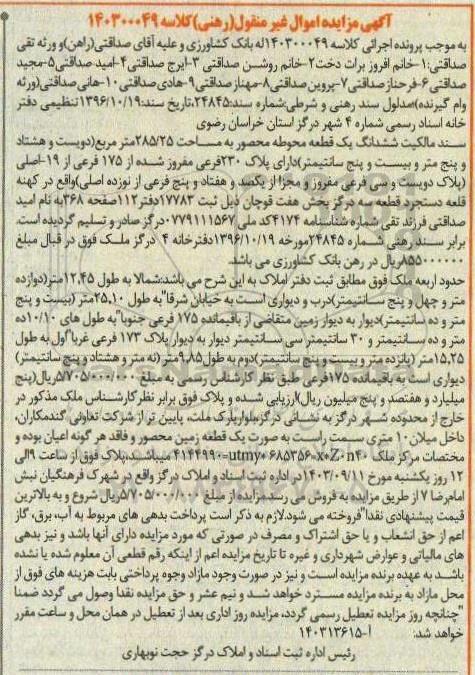 آگهی مزایده اموال غیر منقول(رهنی)کلاسه ۱۴۰۳۰۰۰۴۹
به موجب پرونده اجرائی کلاسه ۱۴۰۳۰۰۰۴۹له بانک کشاورزی و علیه آقای صداقتی(راهن)و ورثه تقی
صداقتی:۱-خانم افروز برات دخت۲-خانم روشن صداقتی ۳-ایرج صداقتی۴-امید صداقتی۵-مجید
صداقتی۶-فرحناز صداقتی۷-پروین صداقتی۸-مهناز صداقتی۹-هادی صداقتی۱۰-هانی صداقتی(ورثه
وام گیرنده)؛مدلول سند رهنی و شرطی:شماره سند:۲۴۸۴۵،تاریخ سند:۱۳۹۶/۱۰/۱۹تنظیمی دفتر
خانه اسناد رسمی شماره ۴ شهر درگز استان خراسان رضوی
سند مالکیت ششدانگ یک قطعه محوطه محصور به مساحت ۲۸۵/۲۵متر مربع(دویست و هشتاد
و پنج متر و بیست و پنج سانتیمتر)دارای پلاک ۲۳۰فرعی مفروز شده از ۱۷۵ فرعی از ۱۹-اصلی
(پلاک دویست و سی فرعی مفروز و مجزا از یکصد و هفتاد و پنج فرعی از نوزده اصلی)واقع در کهنه
قلعه دستجرد قطعه سه درگز بخش هفت قوچان ذیل ثبت ۱۷۷۸۳دفتر۱۱۲صفحه ۳۶۸به نام امید
صداقتی فرزند تقی شماره شناسنامه ۴۱۷۴کد ملی ۰۷۷۹۱۱۱۵۶۷درگز صادر و تسلیم گردیده است.
برابر سند رهنی شماره ۲۴۸۴۵مورخه ۱۳۹۶/۱۰/۱۹دفترخانه ۴ درگز ملک فوق در قبال مبلغ
۸۵۵۰۰۰۰۰۰ریال در رهن بانک کشاورزی می باشد.
حدود اربعه ملک فوق مطابق ثبت دفتر املاک به این شرح می باشد:شمالا به طول ۱۲،۴۵متر(دوازده
متر و چهل و پنج سانتیمتر)درب و دیواری است به خیابان شرقا"به طول ۲۵،۱۰متر (بیست و پنج
متر و ده سانتیمتر)دیوار به دیوار زمین متقاضی از باقیمانده ۱۷۵ فرعی جنوبا"به طول های ۱۰/۱۰ده
متر و ده سانتیمتر و ۳۰ سانتیمتر سی سانتیمتر دیوار به دیوار پلاک ۱۷۳ فرعی غربا"اول به طول
۱۵،۲۵متر (پانزده متر و بیست و پنج سانتیمتر)دوم به طول۹،۸۵متر (نه متر و هشتاد و پنج سانتیمتر)
دیواری است به باقیمانده ۱۷۵فرعی طبق نظر کارشناس رسمی به مبلغ ۵/۷۰۵/۰۰۰/۰۰۰ریال(پنج
میلیارد و هفتصد و پنج میلیون ریال)ارزیابی شده و پلاک فوق برابر نظرکارشناس ملک مذکور در
خارج از محدوده شهر درگز به نشانی درگز،بلوارپارک ملت، پایین تر از شرکت تعاونی گندمکاران،
داخل میلان ۱۰ متری سمت راست به صورت یک قطعه زمین محصور و فاقد هر گونه اعیان بوده و
مختصات مرکز ملک
میباشد،پلاک فوق از ساعت ۹الی
۱۲ روز یکشنبه مورخ ۱۴۰۳/۰۹/۱۱در اداره ثبت اسناد و املاک درگز واقع در شهرک فرهنگیان نبش
امام رضا ۷ از طریق مزایده به فروش می رسد.مزایده از مبلغ ۵/۷۰۵/۰۰۰/۰۰۰ریال شروع و به بالاترین
قیمت پیشنهادی نقدا"فروخته می شود.لازم به ذکر است پرداخت بدهی های مربوط به آب، برق، گاز
اعم از حق انشعاب و یا حق اشتراک و مصرف در صورتی که مورد مزایده دارای آنها باشد و نیز بدهی
های مالیاتی و عوارض شهرداری و غیره تا تاریخ مزایده اعم از اینکه رقم قطعی آن معلوم شده یا نشده
باشد به عهده برنده مزایده است و نیز در صورت وجود مازاد وجوه پرداختی بابت هزینه های فوق از
محل مازاد به برنده مزایده مسترد خواهد شد و نیم عشر و حق مزایده نقدا وصول می گردد ضمنا
"چنانچه روز مزایده تعطیل رسمی گردد، مزایده روز اداری بعد از تعطیل در همان محل و ساعت مقرر
خواهد شد: آ-۱۴۰۳۱۳۶۱۵
رئیس اداره ثبت اسناد و املاک درگز حجت نوبهاری